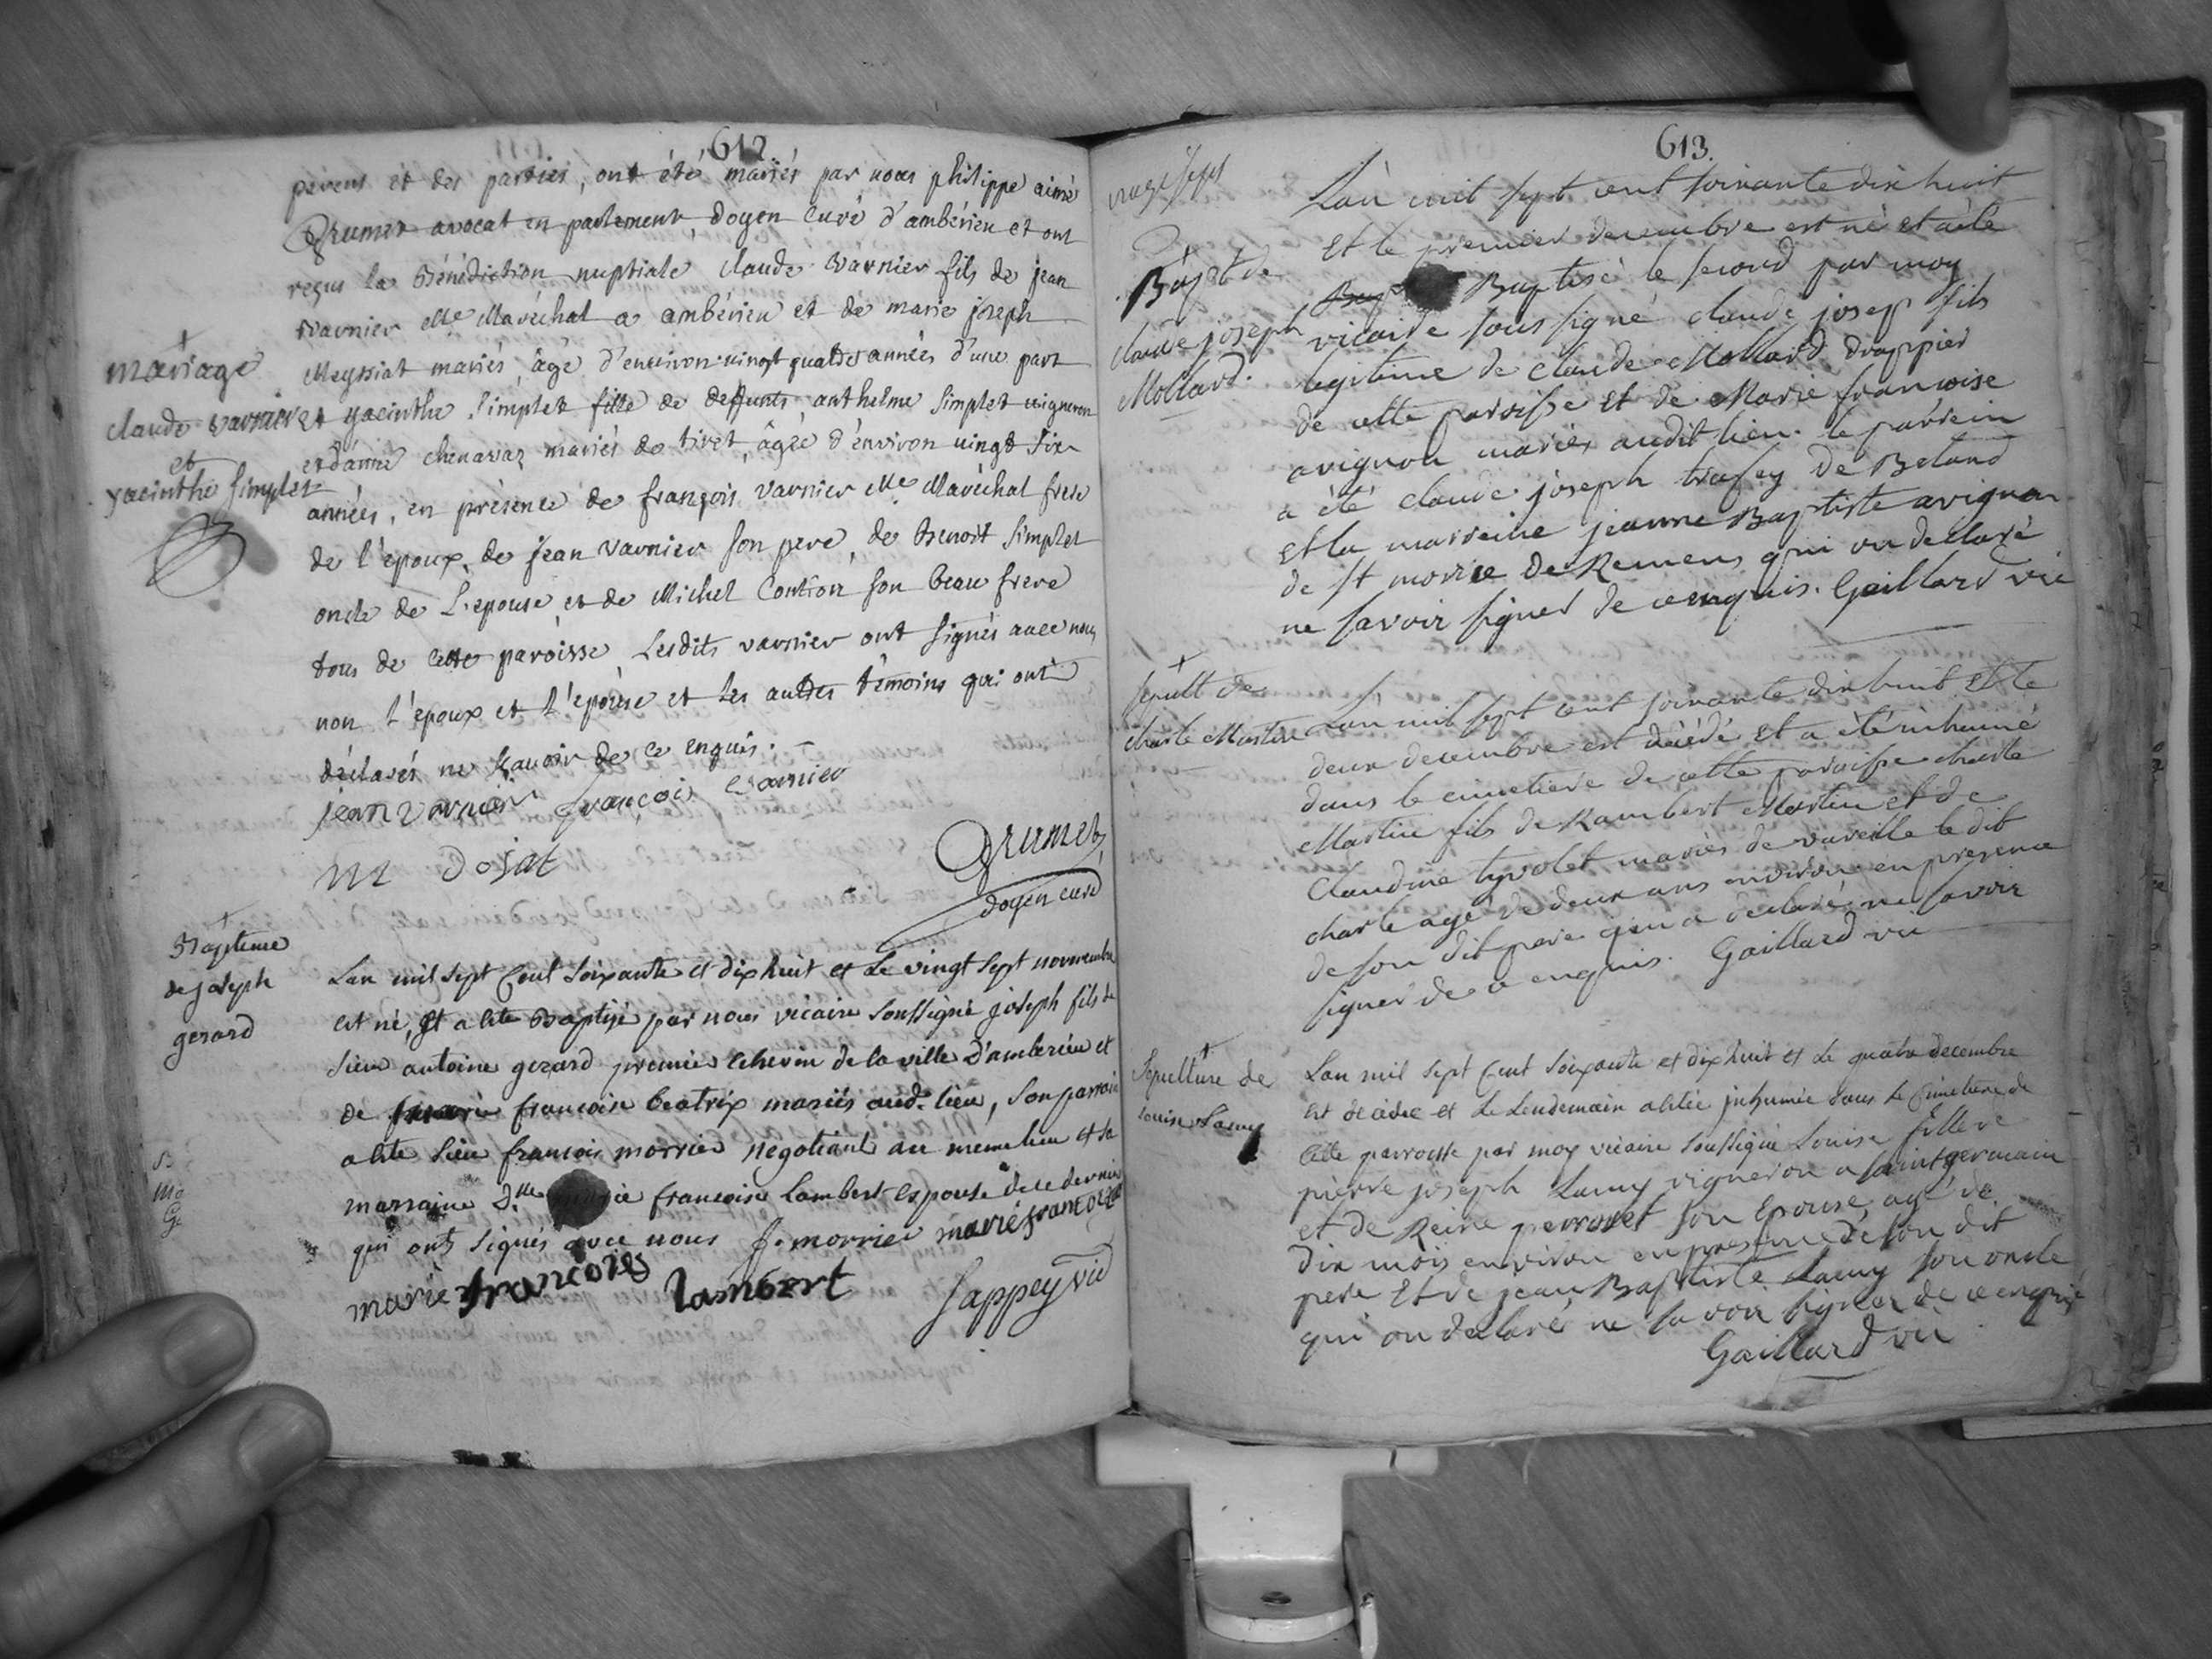 612.
parens et des parties, ont été mariés par nous philippe aimé
Grumet avocat en parlement, doyen curé d'ambérieu et ont
reçus la Bénédiction nuptiale, claude varnier fils de jean
varnier Me Maréchal a ambérieu et de marie joseph
Meyssiat mariés, âgé d'environ vingt quatre années d'une part
mariage
claude varnier
et
yacinthe simplet
et yacinthe simplet fille de deffunts anthelme simplet vigneron
et d'anne chenavaz mariés de tiret, âgée d'environ vingt six
années, en présence de françois varnier Me Maréchal frere
de l'epoux, de jean varnier son pere, de Benoit simplet
oncle de L'epouse, et de Michel son beau frere
tous de cette paroisse, Lesdits varnier ont signés avec nous
non l'epoux et l'epouse et les autres témoins qui ont
déclarés ne savoir de ce enquis.
jean varnier françois varnier
m dojat
Grumet
doyen curé
Bapteme
de joseph
gerard
Lan mil sept Cent soixante et dix huit et Le vingt sept novembre
est né, Et a ete Baptisé par nous vicaire soussigné joseph fils de
sieur antoine gerard premier echevin de la ville d'amberieu et
de marie francoise beatrix mariés aud. lieu, son parrain
a ete sieur francois morrier negotiant au meme lieu et sa
marraine d.lle marie francoise Lambert espouse de ce dernier
qui ont signés avec nous f. morrier marie francoise
marie francoise lambert
Sappey vic
613.
Bapt de
claude joseph
Mollard.
Lan mil sept cent soixante dix huit
et le premier decembre est né et a ete
Baptisé le second par moy
vicaire sous signé claude josep fils
legitime de claude Mollard drappier
de cette paroisse et de Marie francoise
avignon mariés audit lieu. le parrein
a été claude joseph trafey de Beland
et la marreine jeanne Baptiste avignon
de st morice de Remens qui on declaré
ne savoir signer de ce enquis. Gaillard vic
sepult de
charle Martin
Lan mil sept cent soixante dix huit et le
deux decembre est décédé et a été inhumé
dans le cimetiere de cette paroisse charle
Martin fils de Rambert Martin et de
Claudine tyvolet mariés de vareille le dit
charle agé de deux ans environ en presence
de son dit pere qui a declaré ne savoir
signer de ce enquis. Gaillard vic
Sepulture de
Louise Lamy
Lan mil sept Cent soixante et dix huit et Le quatre decembre
est decedee et Le Lendemain a etée inhumée dans Le Cimetiere de
cette parroisse par moy vicaire soussigné Louise fille de
pierre joseph Lamy vigneron a saint germain
et de Reine perrozet son Epouse, agé de
dix mois environ en presence de son dit
pere Et de jean Baptiste Lamy son oncle
qui on declaré ne savoir signer de ce enquis
Gaillard vic